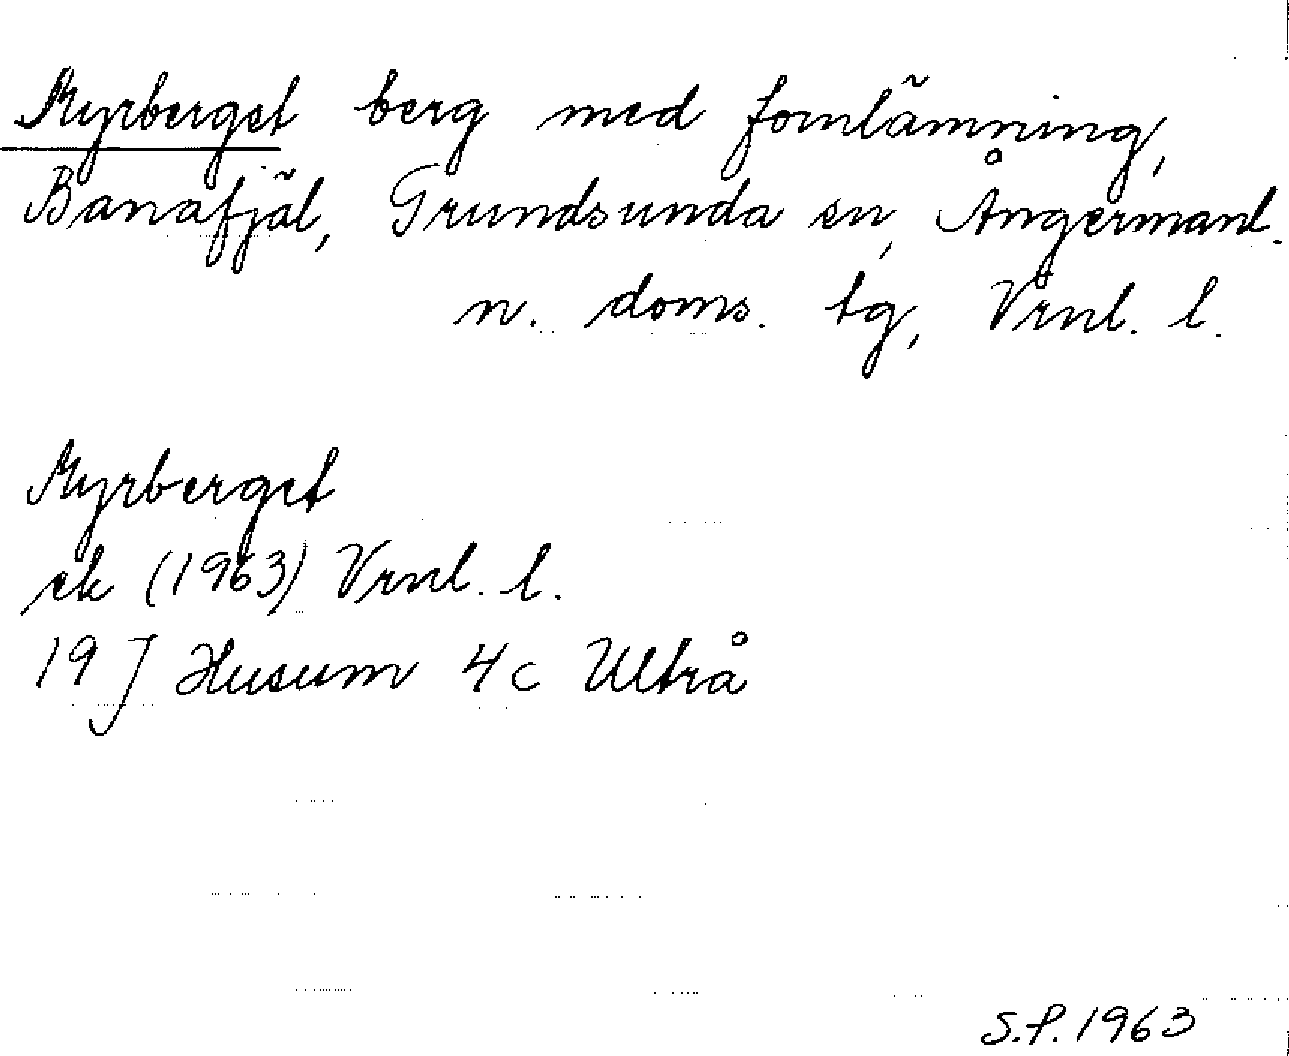 Myrberget berg med fornlämning,
Banafjäl, Grundsunda sn, Ångermanl.
n. doms. tg, Vrnl. l.
Myrberget
ek (1963) Vrnl. l.
19 J Husum 4c Ultrå
S.P. 1963